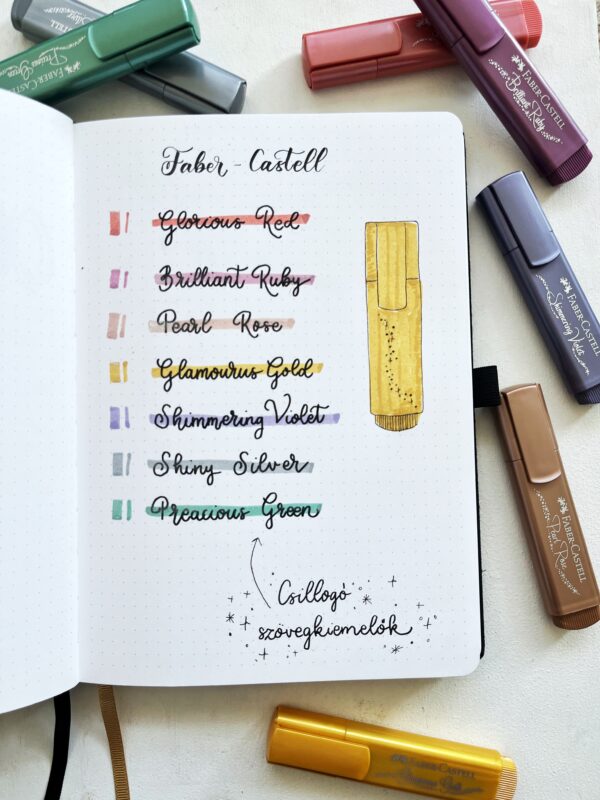 Silver
FABER-CASTELL
Precious Green
FABER-CASTELL
Brilliant Ruby
Faber-Castell
Glorious Red
Brilliant Ruby
Pearl Rose
Glamourus Gold
Shimmering Violet
Shiny Silver
Preacious Green
Csillogó
szövegkiemelők
FABER-CASTELL
Shimmering Violet
FABER-CASTELL
Pearl Rose
FABER-CASTELL